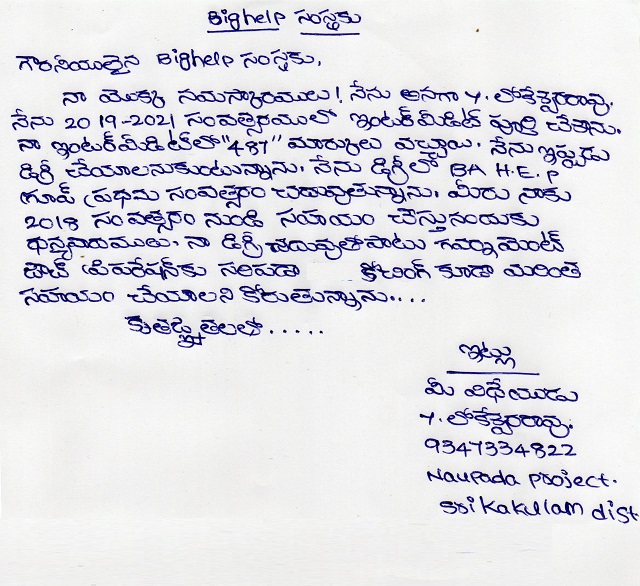 Bighelp సంస్థకు
గౌరనీయులైన Bighelp సంస్థకు,
నా యొక్క నమస్కారములు! నేను అనగా Y. లోకేశ్వరరావు.
నేను 2019-2021 సంవత్సరములో ఇంటర్మీడిట్ పూర్తి చేశాను.
నా ఇంటర్మీడిట్‌లో "487" మార్కులు వచ్చాయి. నేను ఇప్పుడు
డిగ్రీ చేయాలనుకుంటున్నాను. నేను డిగ్రీలో BA H.E.P
గ్రూప్ ప్రథమ సంవత్సరం చదువుతున్నాను. మీరు నాకు
2018 సంవత్సరం నుండి సహయం చేస్తునందుకు
ధన్యవాదములు. నా డిగ్రీ చదువుతోపాటు గవర్నమెంట్
జాబ్ ప్రిపరేషన్‌కు సరిపడా కోచింగ్ కూడా మరింత
సహయం చేయాలని కోరుతున్నాను....
కృతజ్ఞతలలో.....
ఇట్లు
మీ విధేయుడు
Y. లోకేశ్వరరావు.
9347334822
Naupada project.
Srikakullam dist